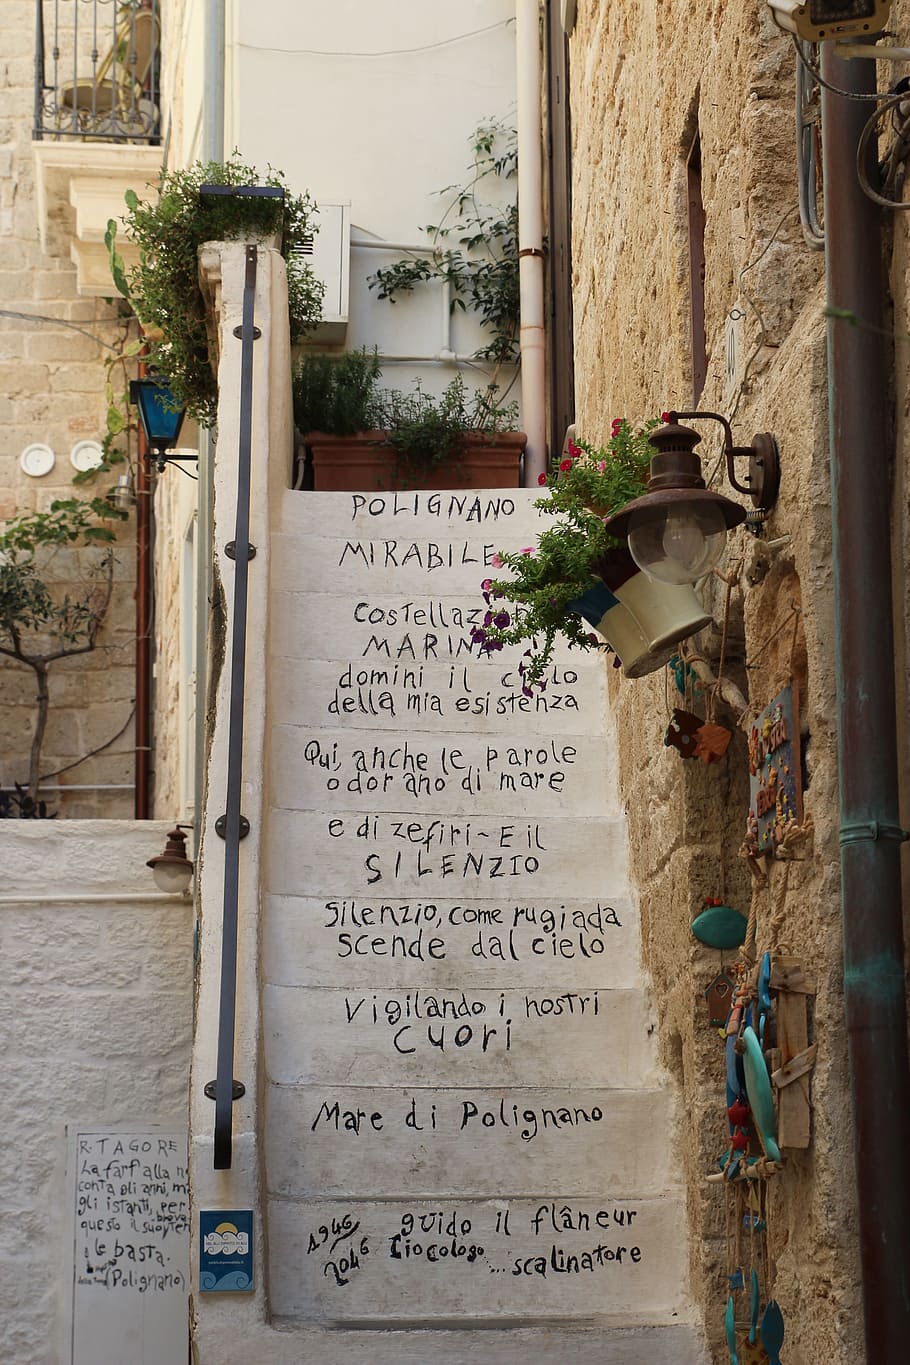 POLIGNANO
MIRABILE
COSTELLAZ
MARINA
domini il cielo
della mia esistenza
Qui, anche le parole
odorano di mare
e di zefiri~ E il
SILENZIO
silenzio, come rugiada
scende dal cielo
Vigilando i nostri
CUORI
Mare di Polignano
1946
2046
guido il flâneur
... scalinatore
R. TAGORE
La farfalla n
conta gli anni, m
gli istanti, per
questo il suo
le basta.
(Polignano)